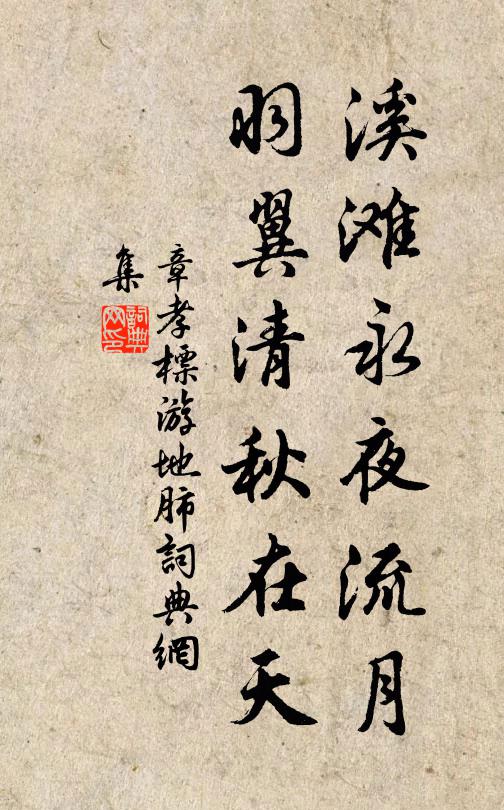 溪滩永夜流月
羽翼清秋在天
章孝標游地肺詞典網
集
詞典
网印